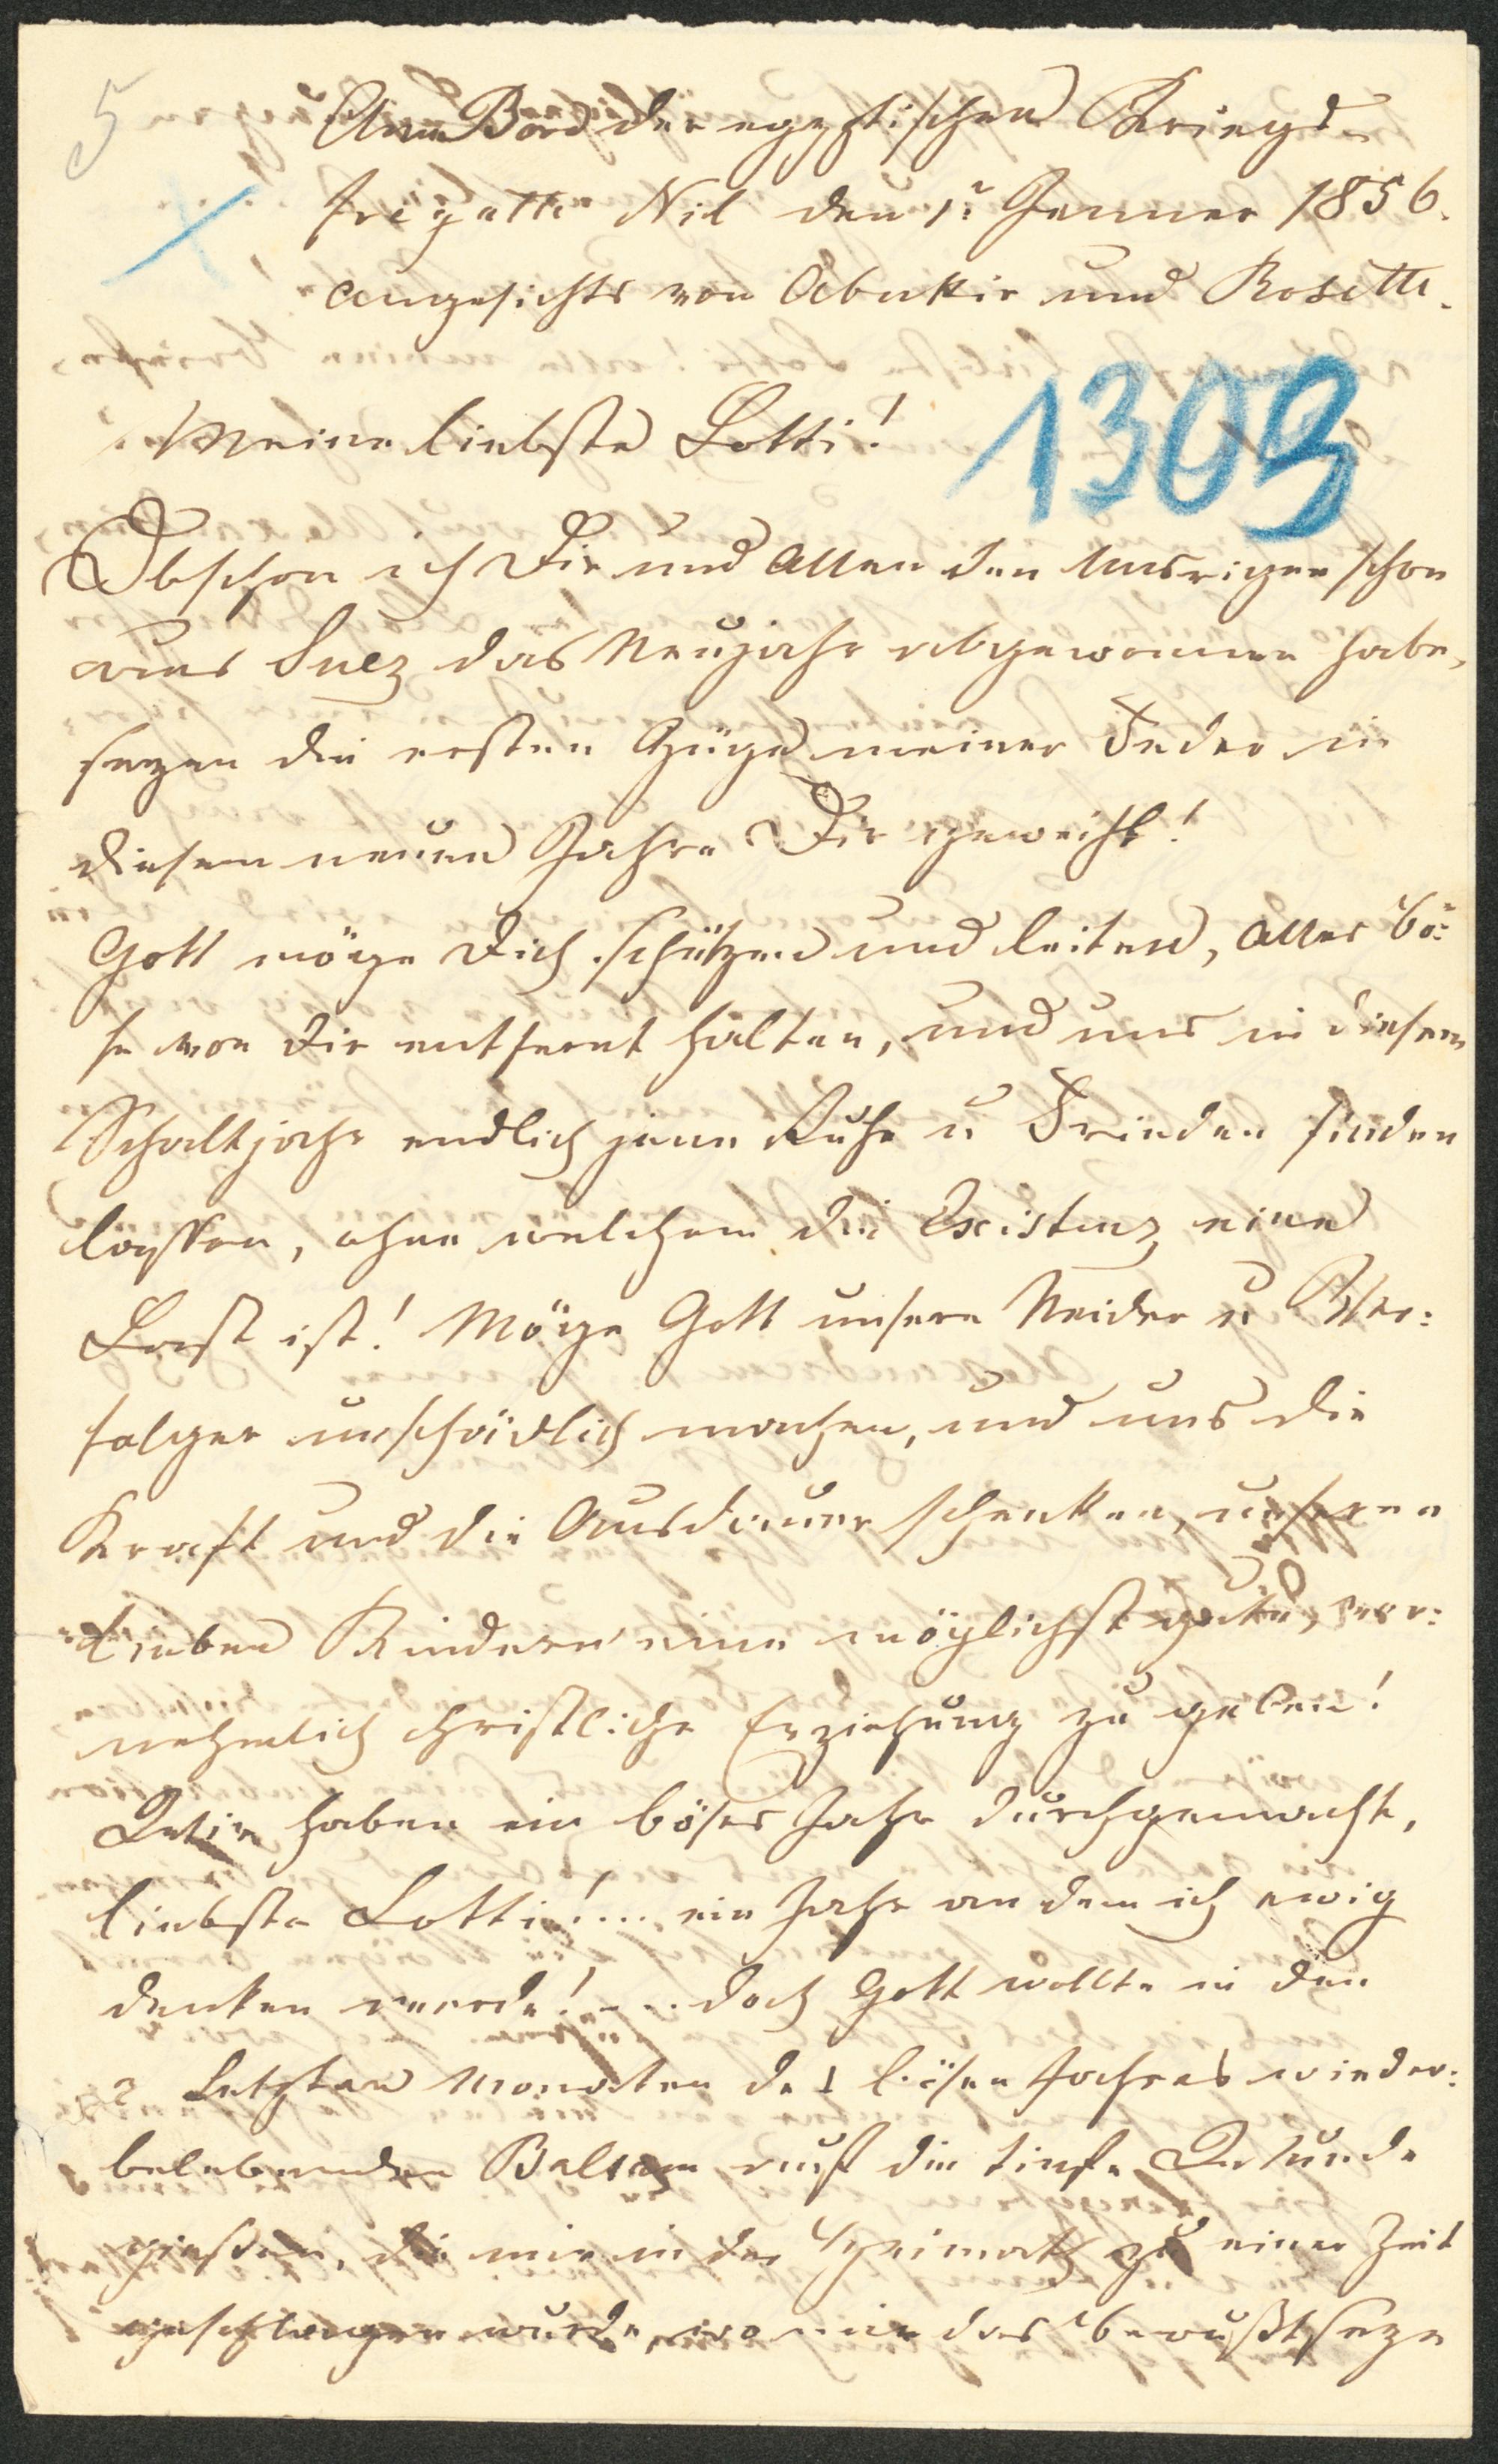 5
Am Bord der egyptischen Kriegs-
fregatte Nil den 1t Jenner 1856.
angesichts von Abukir und Rosette.
1309
Meine liebste Lotti!
Obschon ich Dir und Allen den Unsrigen schon
aus Suez das Neujahr abgewonnen habe,
seyen die ersten Züge meiner Feder in
diesem neuen Jahre Dir geweiht!
Gott möge Dich schützen und leiten, Alles bö:
se von Dir entfernt halten, und uns in diesem
Schaltjahr endlich jene Ruhe u Frieden finden
lassen, ohne welchem die Existenz eine
Last ist! Möge Gott unsere Neider u Ver:
folger unschädlich machen, und uns die
Kraft und die Ausdauer schenken, unseren
lieben Kindern eine möglichst gute, vor:
nehmlich christliche Erziehung zu geben!
Wir haben ein böses Jahr durchgemacht,
liebste Lotti!.... ein Jahr an dem ich ewig
denken werde!.... doch Gott wollte in den
2 letzten Monaten des bösen Jahres wieder:
belebenden Balsam auf die tiefe Wunde
gießen, die mir in der Heimath zu einer Zeit
geschlagen wurde, wo mir das Bewußtseyn